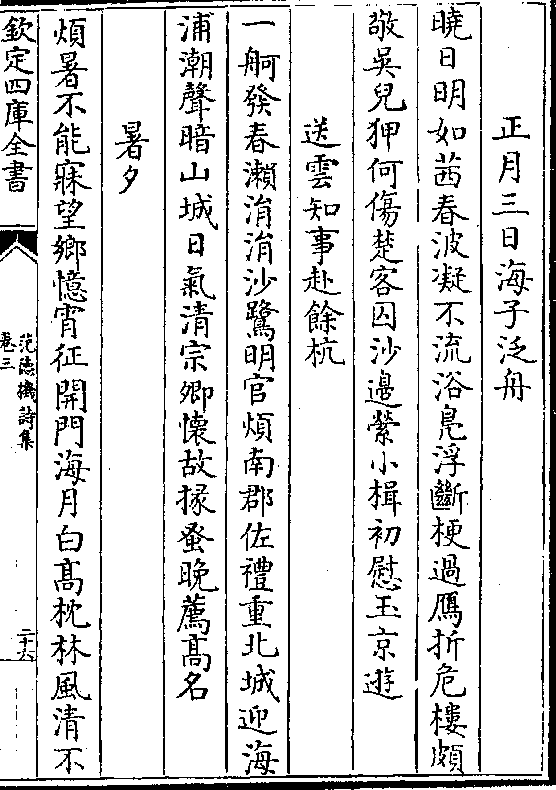 正月三日海子泛舟
曉日明如茜春波凝不流浴鳧浮斷梗過鴈折危樓頗
敬吳兒狎何傷楚客囚沙邊縈小楫初慰玉京遊
送雲知事赴餘杭
一舸發春瀬涓涓沙鷺明官煩南郡佐禮重北城迎海
浦潮聲暗山城日氣清宗卿懷故掾蚤晚薦髙名
暑夕
煩暑不能寐望鄉憶宵征開門海月白髙枕林風清不
欽定四庫全書
范德機詩集
卷三
二十六